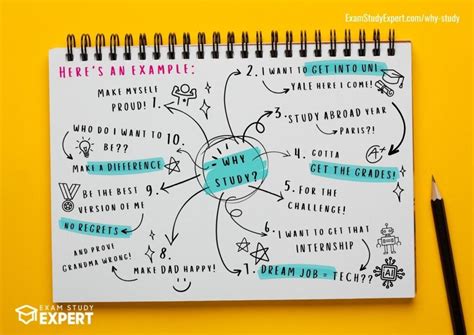 ExamStudyExpert.com/why-study
HERE'S AN EXAMPLE:
WHY
STUDY?
MAKE MYSELF
PROUD! 1.
2. I WANT TO GET INTO UNI.
YALE HERE I COME!
3. STUDY ABROAD YEAR
PARIS?!
4. GOTTA
GET THE GRADES!
A+
5. FOR THE
CHALLENGE!
6. I WANT TO GET THAT
INTERNSHIP
7. DREAM JOB = TECH??
AI
8.
MAKE DAD HAPPY!
9. BE THE BEST
VERSION OF ME
NO REGRETS
AND PROVE
GRANDMA WRONG!
WHO DO I WANT TO 10.
BE??
MAKE A DIFFERENCE
EXAM STUDY
EXPERT